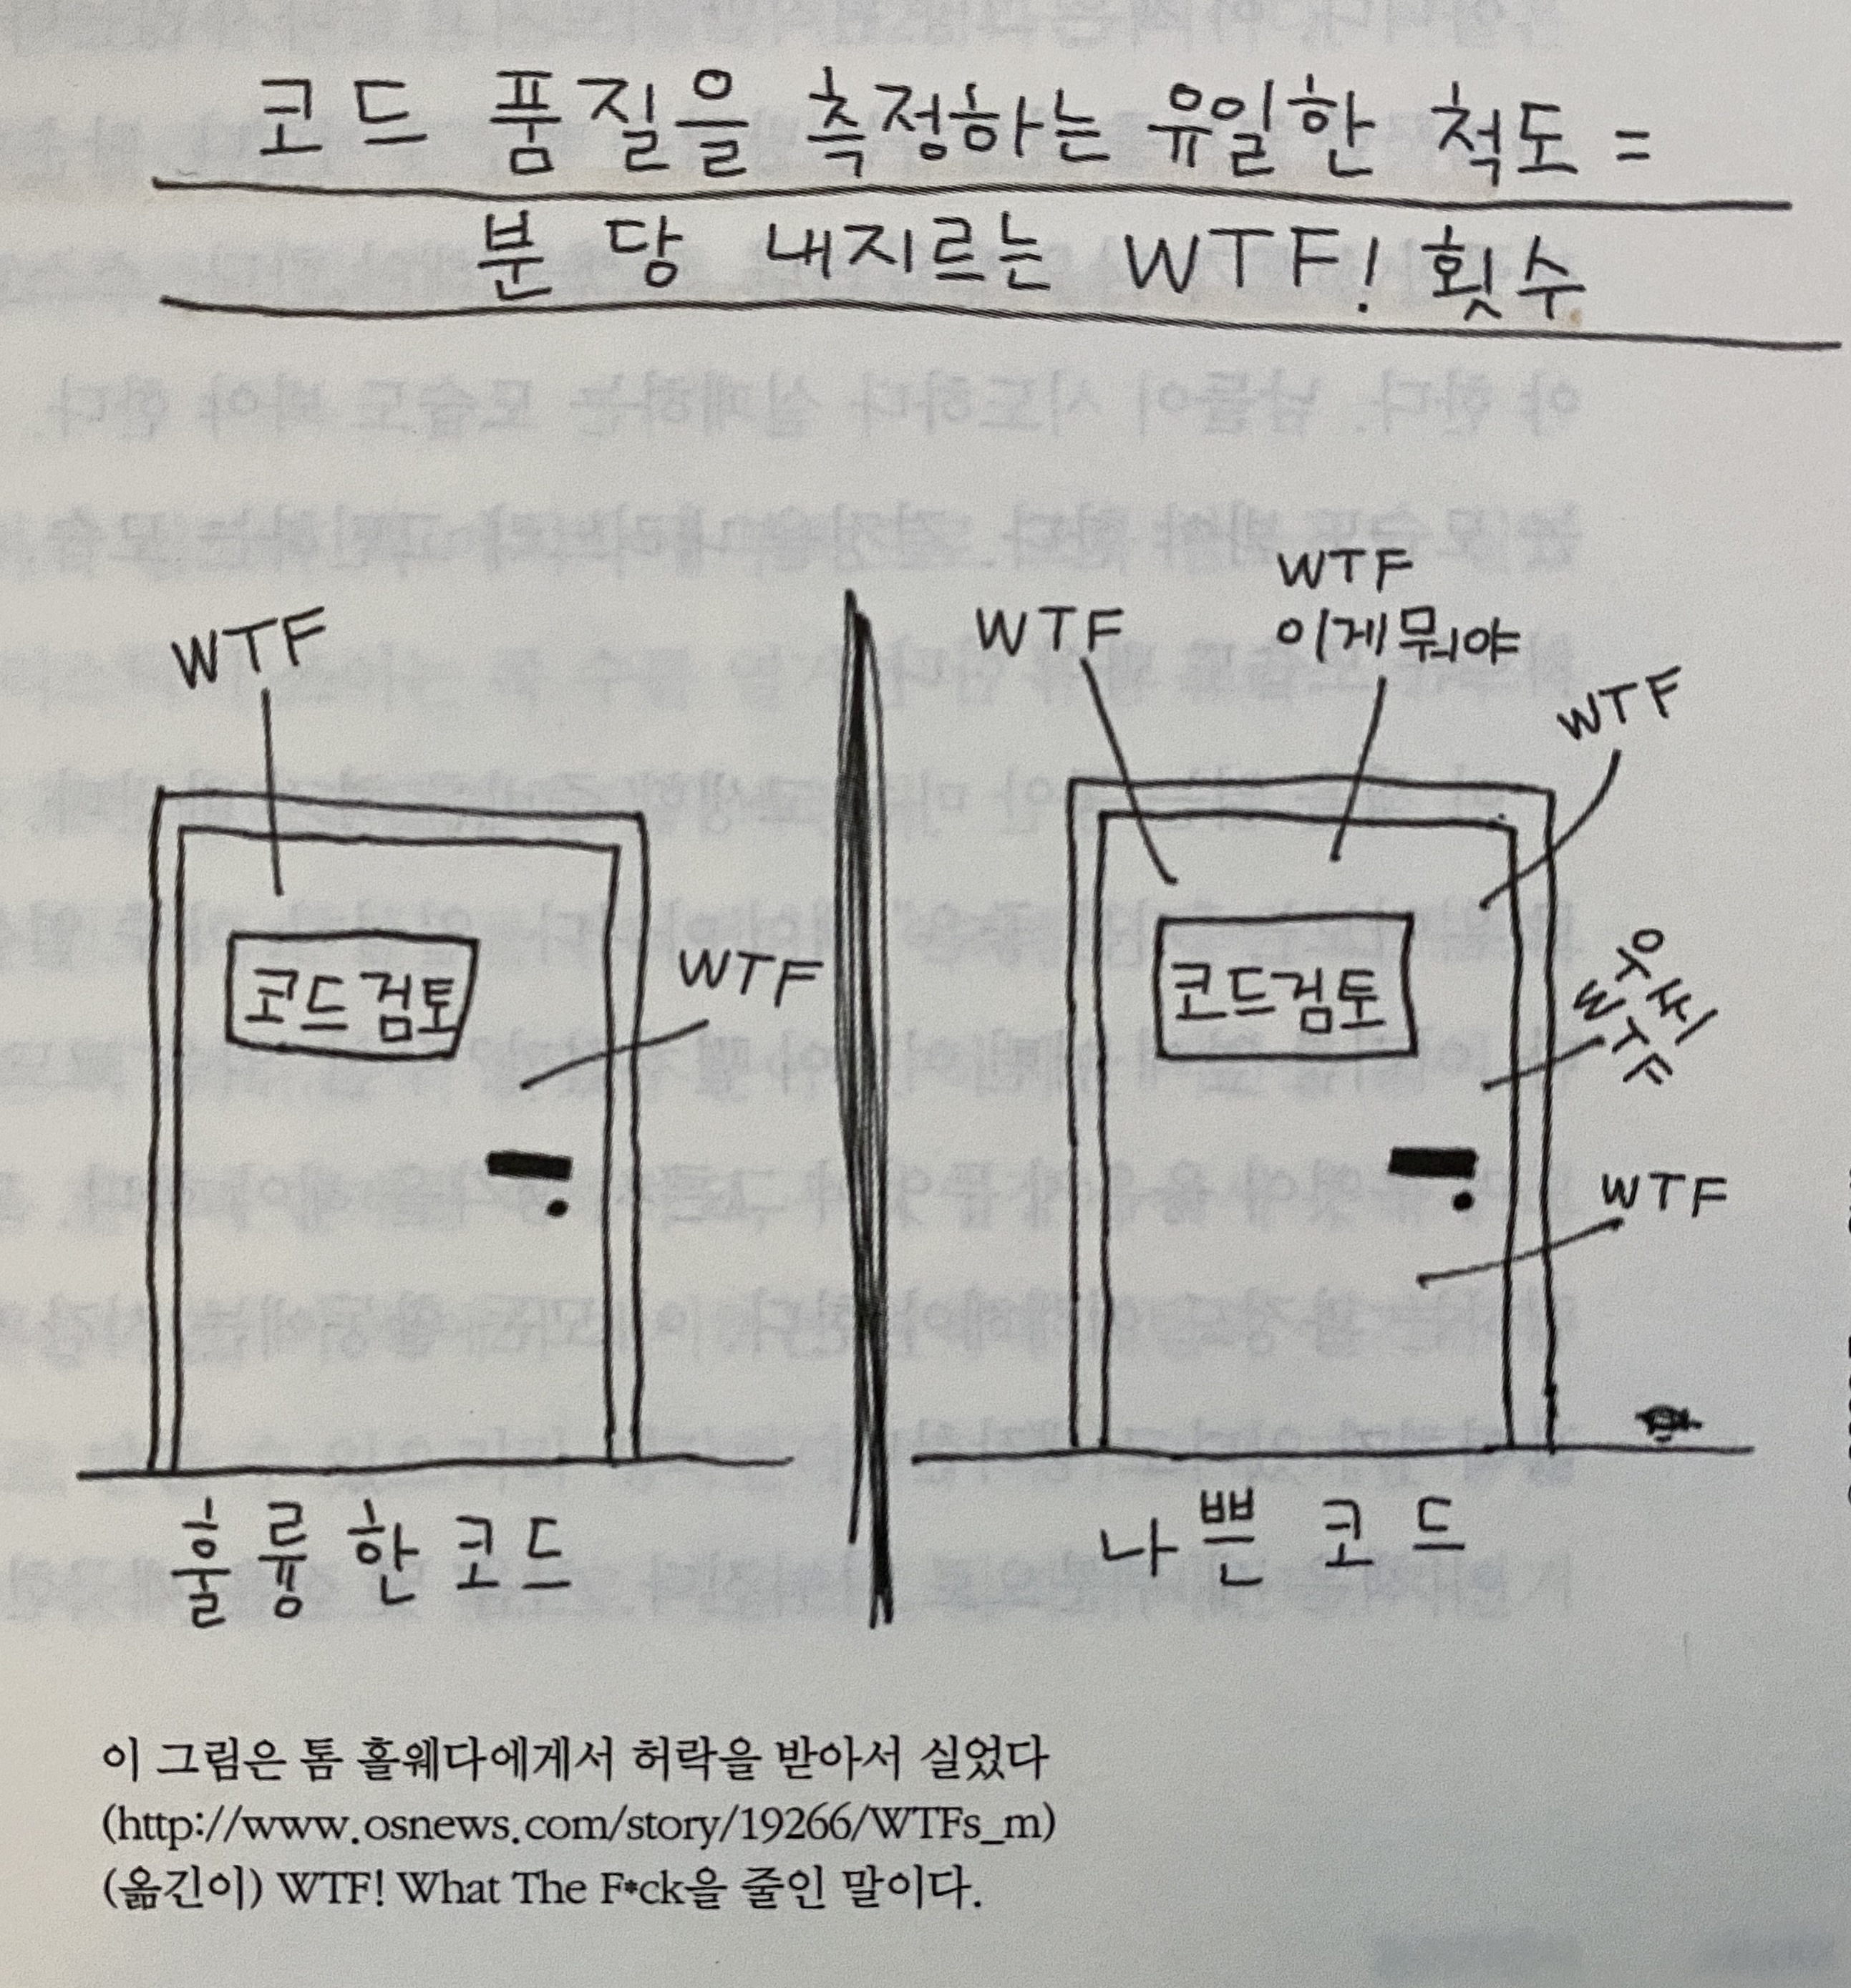 코드 품질을 측정하는 유일한 척도 =
분 당 내지르는 WTF! 횟수
WTF
WTF
코드 검토
훌륭한 코드
WTF
WTF
이게 뭐야
WTF
우씨
WTF
WTF
코드 검토
나쁜 코드
이 그림은 톰 홀웨다에게서 허락을 받아서 실었다
(http://www.osnews.com/story/19266/WTFs_m)
(옮긴이) WTF! What The F*ck을 줄인 말이다.